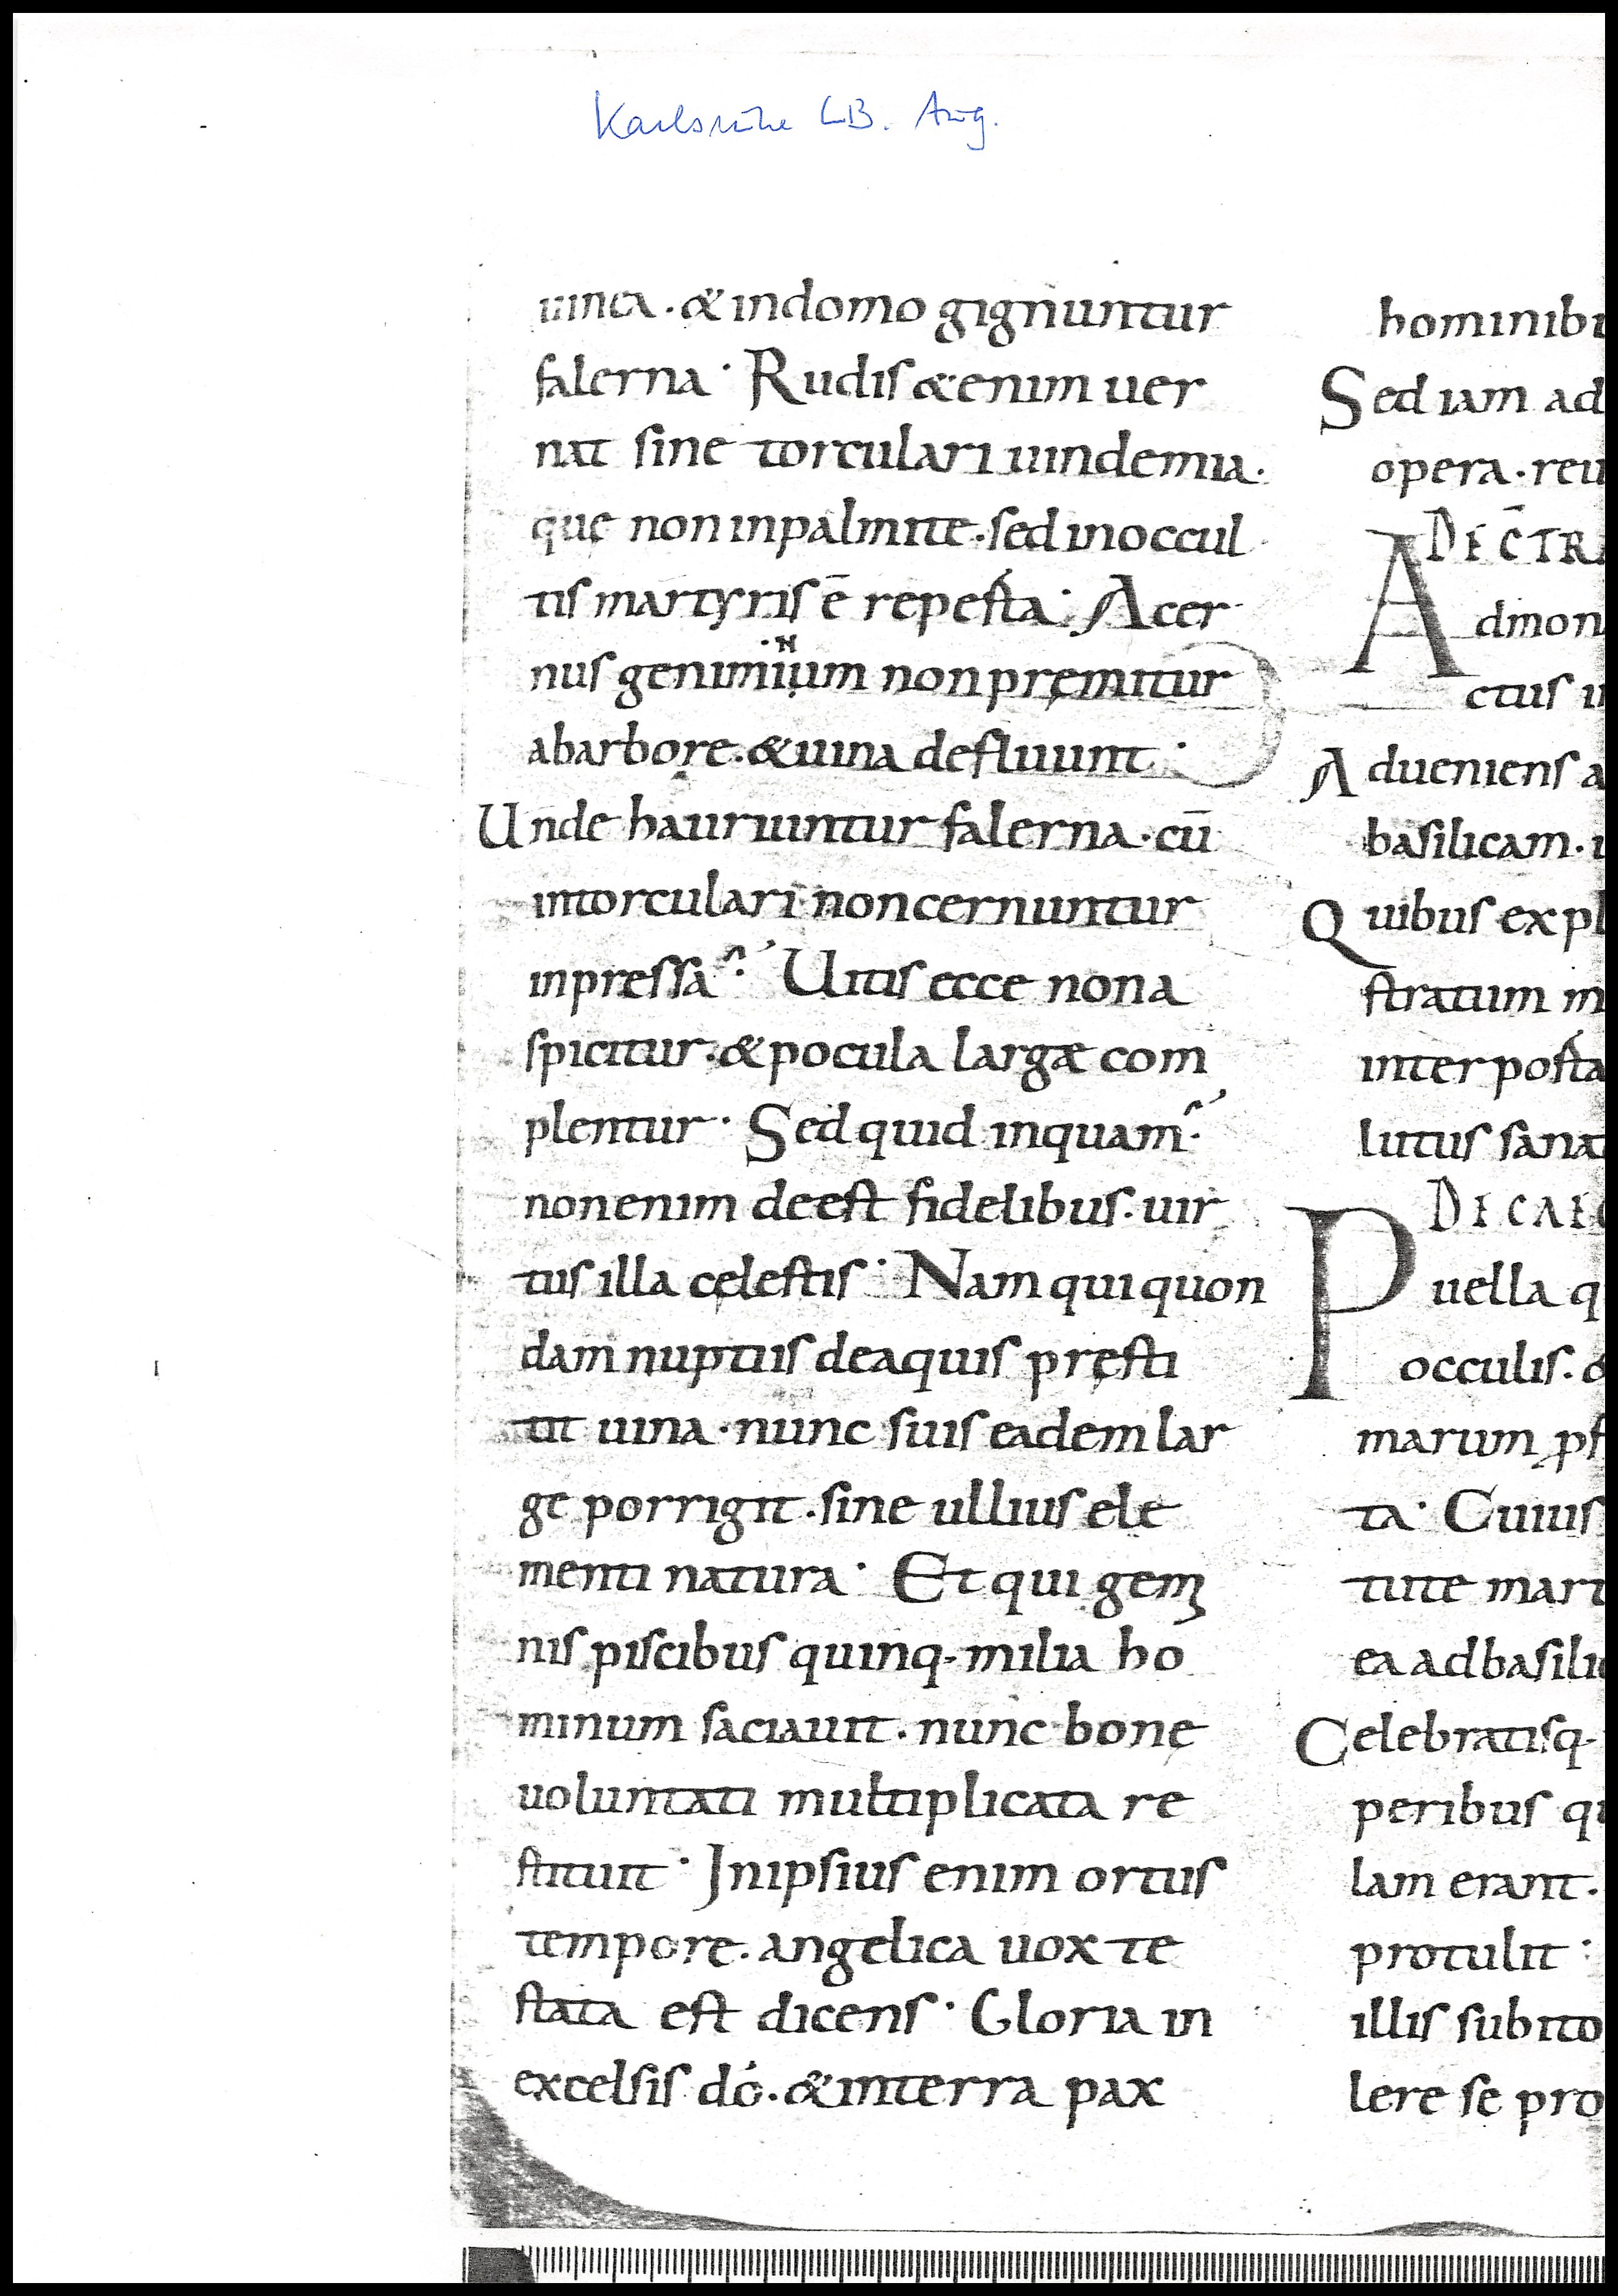 Karlsruhe LB. Aug.
uinea. & indomo gignuntur
falerna· Rudis &enim uer
nat sine torculari uindemia.
que non inpalmite. sed inoccul
tis martyris ē repęsta· Acer
nus genimiNum non pręmitur
abarbore. & uina defluunt·
Unde hauriuntur falerna. cū
intorculari noncernuntur
inpressa? Uitis ecce nona
spicitur. & pocula largæ com
plentur· Sed quid inquam?
nonenim deest fidelibus. uir
tus illa cęlestis· Nam qui quon
dam nuptiis deaquis pręsti
tit uina. nunc suis eadem lar
ge porrigit. sine ullius ele
menti natura· Et qui gemi
nis piscibus quinq· milia ho
minum saciauit. nunc bonę
uoluntati multiplicata re
stituit· Inipsius enim ortus
tempore. angelica uox te
stata est dicens· Gloria in
excelsis dō. & interra pax
hominibu
Sed iam ad
opera. reu
DE C̄TR
Admon
ctus i
Adueniens a
basilicam.
Quibus expl
stratum in
interposta
litus sanat
DE CAEC
Puella q
occulis. &
marum pf
ta· Cuius
tute mart
ea adbasilic
Celebratisq·
peribus qu
lam erant.
protulit·
illis subito
lere se pro